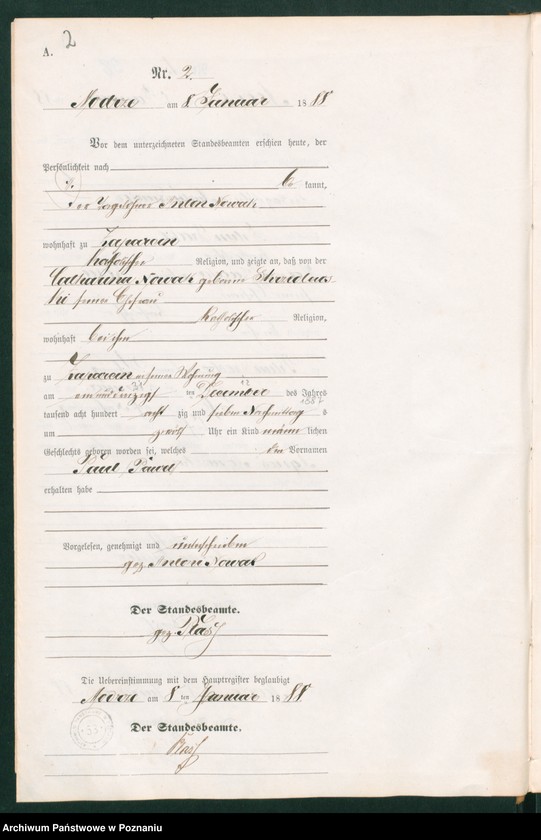 A. 2
Nr. 2.
Modze am 8. Januar 1888
Vor dem unterzeichneten Standesbeamten erschien heute, der
Persönlichkeit nach
be kannt,
der Anton Nowak
wohnhaft zu
katholischer Religion, und zeigte an, daß von der
Catharina Nowak geborene
seiner Ehefrau
katholischer Religion,
wohnhaft bei ihm
zu in seiner Wohnung
am 31 ten December 12 des Jahres
1887
tausend acht hundert acht zig und sieben Nachmittag s
um zwölf Uhr ein Kind männ lichen
Geschlechts geboren worden sei, welches den Vornamen
Paul
erhalten habe
Vorgelesen, genehmigt und unterschrieben
gez. Anton Nowak
Der Standesbeamte.
gez.
Die Uebereinstimmung mit dem Hauptregister beglaubigt
Modze am 8 ten Januar 1888
Der Standesbeamte.
Archiwum Państwowe w Poznaniu